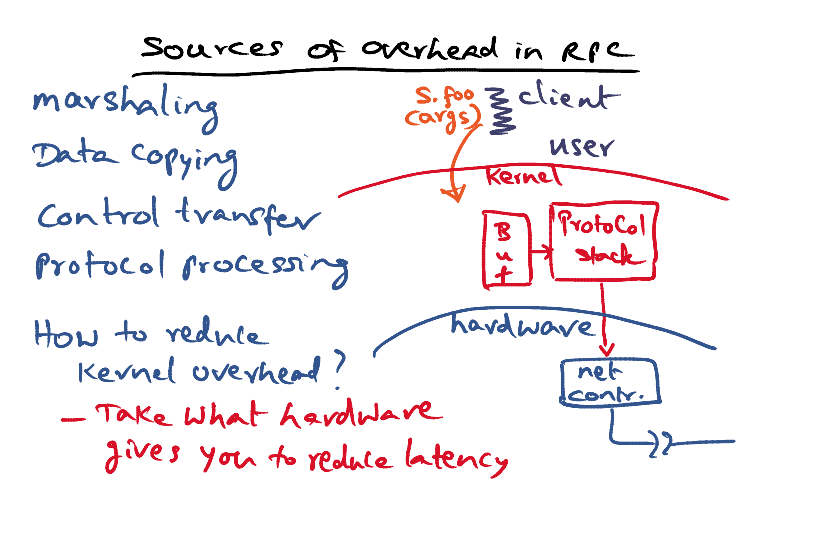 Sources of overhead in RPC
marshaling
Data Copying
Control transfer
Protocol processing
How to reduce
Kernel overhead?
- Take what hardware
gives you to reduce latency
S.foo
(args)
client
user
Kernel
Buf
Protocol
stack
hardware
net
contr.